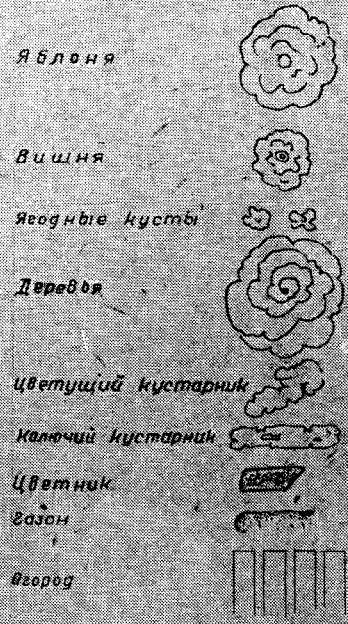 Яблоня
Вишня
Ягодные кусты
Деревья
Цветущий кустарник
Колючий кустарник
Цветник
Газон
Огород